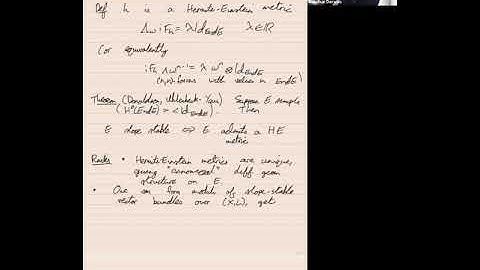 Def h is a Hermite-Einstein metric
Λω iFh = λ Id EndE λ∈ℝ
(or equivalently
iFh ∧ ω^n-1 = λ ω^n ⊗ Id EndE
(n,n)-forms with values in EndE)
Theorem (Donaldson, Uhlenbeck-Yau) Suppose E simple
(H⁰(EndE) = <Id EndE>). Then
E slope stable ⇔ E admits a HE
metric
Rmks • Hermite-Einstein metrics are unique,
giving "canonical" diff geom
structure on E.
• One can form moduli of slope-stable
vector bundles over (X,L), get